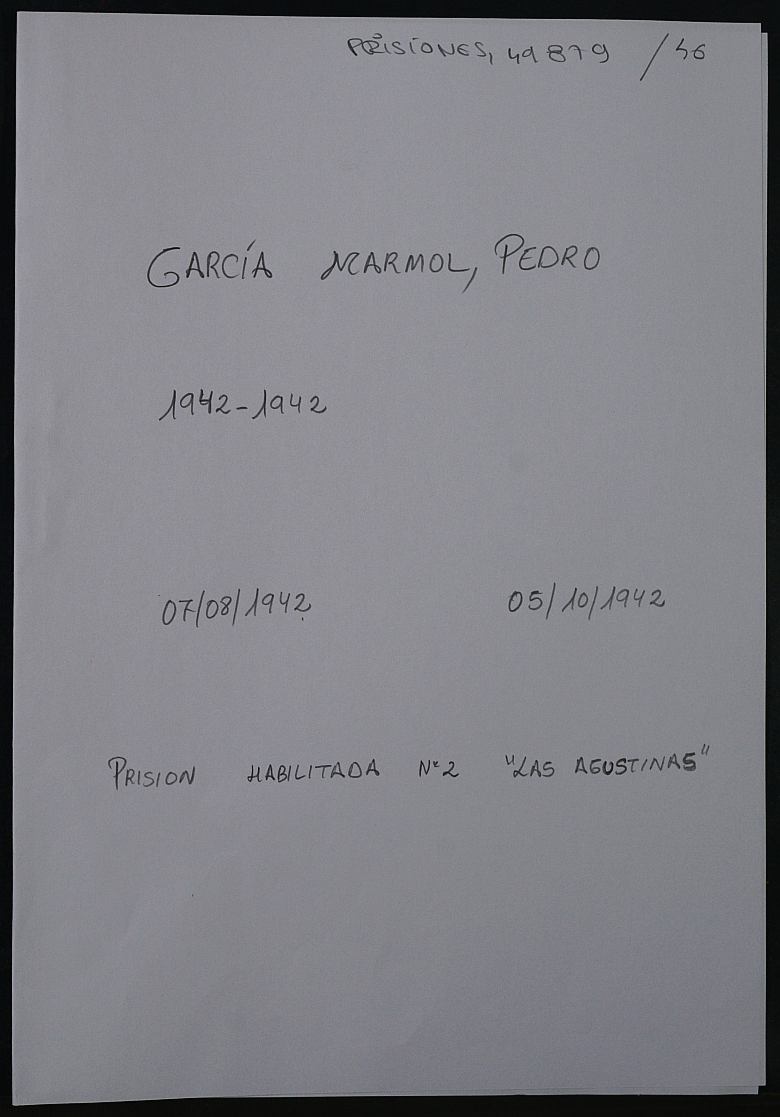 PRISIONES, 49879 /46
GARCÍA MARMOL, PEDRO
1942-1942
07/08/1942 05/10/1942
PRISION HABILITADA Nº2 "LAS AGUSTINAS"